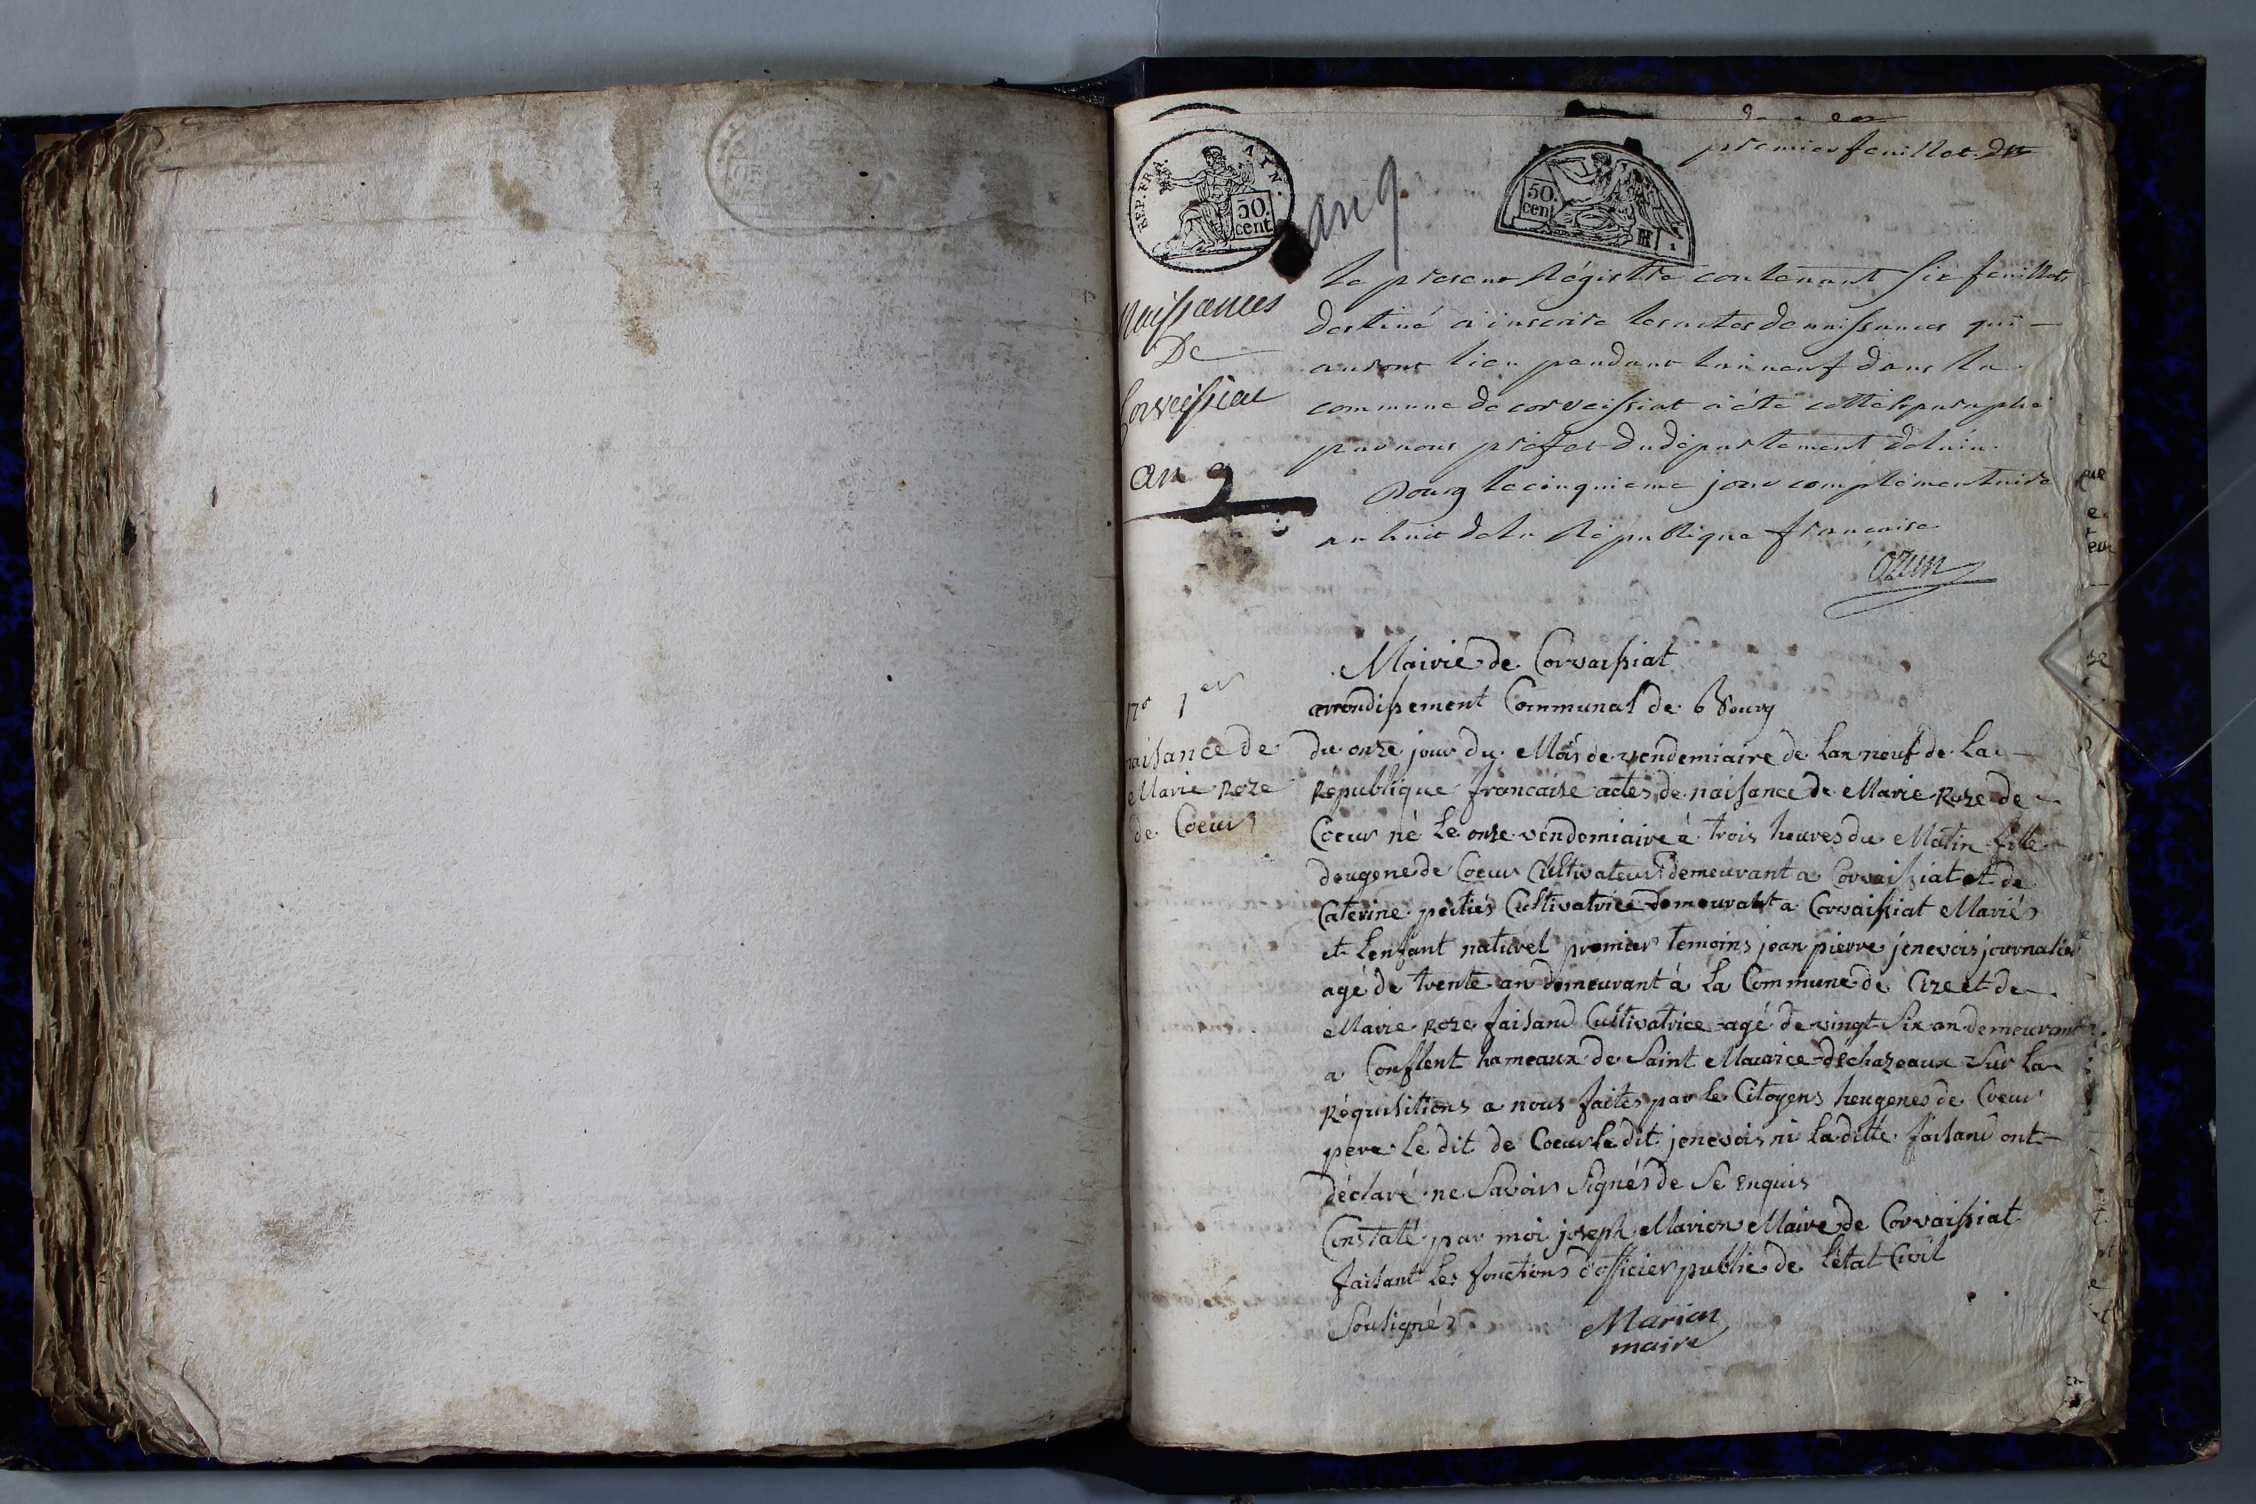 premier feuillet
REP. FRA. AYN.
50. cent
an 9
50. cent
Naissances
De
Corveissiat
an 9
Le present Régistre contenant Six feuillets
destiné a inscrire les actes de naissances qui —
auront lieu pendant l'an neuf dans la
commune de corveissiat a été cotté et paraphé
par nous préfet du département de l'ain.
Bourg le cinquieme jour complémentaire
an huit de la République francaise
ozun
Mairie de Corvaissiat
arrondissement Communal de bourg
No 1er
naisance de
Marie Roze
de Coeur
du onze jour du Mois de vendemiaire de lan neuf de La —
République francaise actes de naisance de Marie Roze de
Coeur né Le onze vendemiaire à trois heures du Matin fille
deugene de Coeur Cultivateur demeurant a Corvaissiat et de
Caterine peitiés Cultivatrice demeurant a Corvaissiat Mariés
et Lenfant naturel premier temoins jean pierre jenevois journalier
agé de trente an demeurant á La Commune de Cize et de
Marie Roze faisand Cultivatrice agé de vingt Six an demeurant
a Conflent hameaux de Saint Maurice dechazeaux Sur La
Réquisitions a nous faites par le Citoyens heugenes de Coeur
pere Le dit de Coeur Le dit jenevois ni La ditte faisand ont —
déclaré ne Savoir Signés de Se enquis
Constaté par moi joseph Marion Maire de Corvaissiat
faisant Les fonctions d'officier public de l'état Civil
Sousignés
Marion
maire